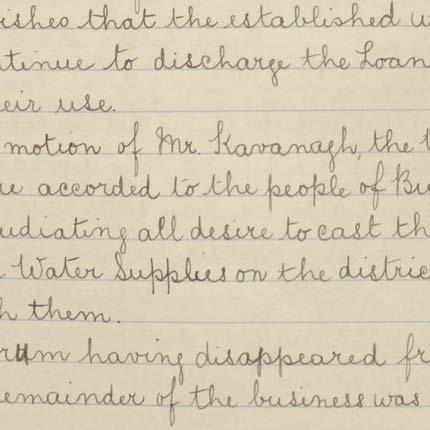 ishes that the established w
ntinue to discharge the Loan
eir use.
motion of Mr. Kavanagh, the t
re accorded to the people of Bu
udiating all desire to cast th
Water Supplies on the distric
h them.
rum having disappeared fr
emainder of the business was